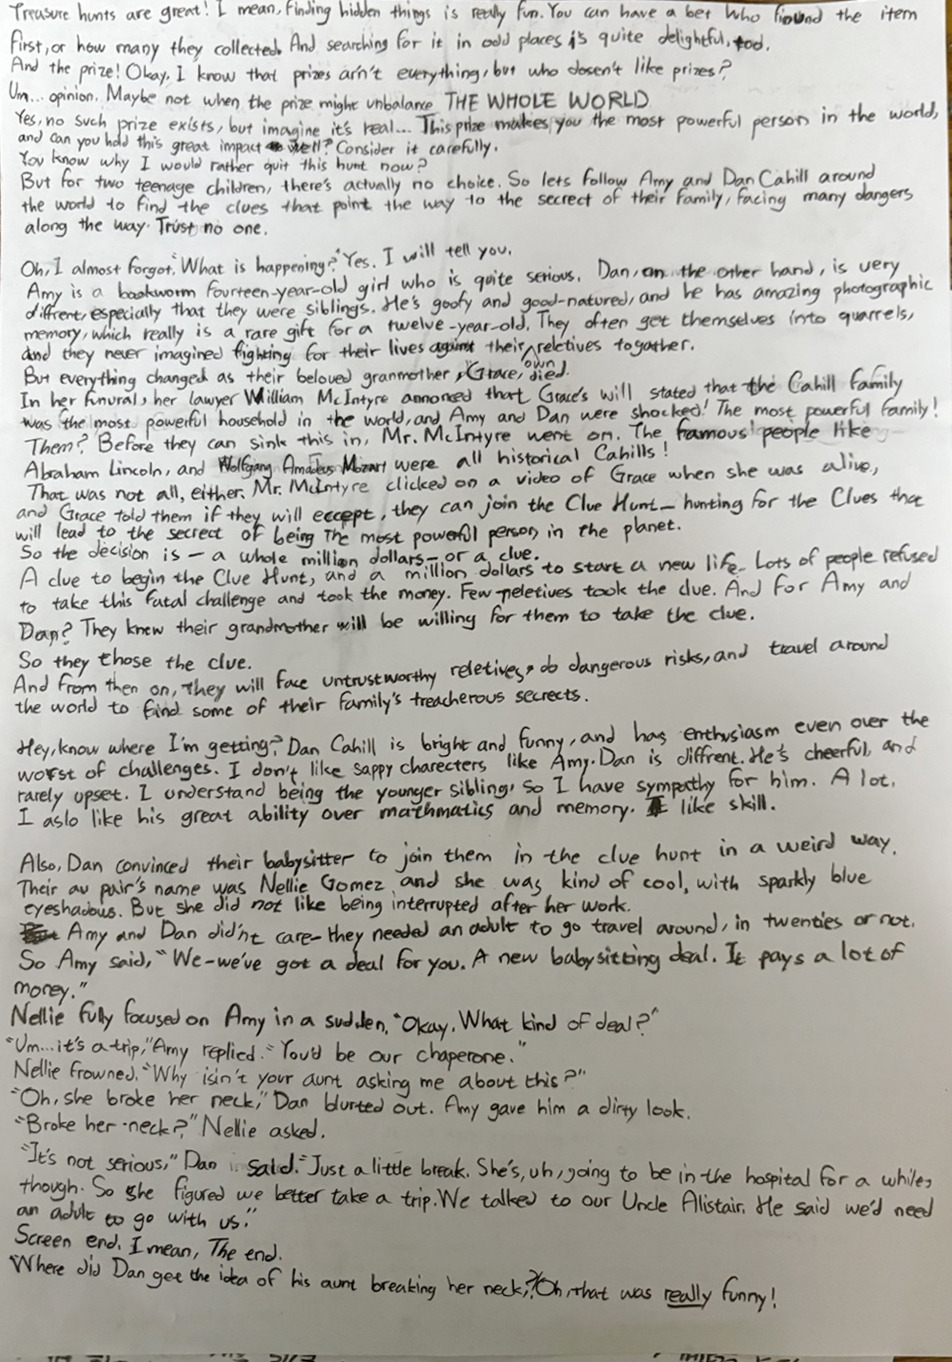 Treasure hunts are great! I mean, finding hidden things is really fun. You can have a bet who found the item
first, or how many they collected. And searching for it in odd places is quite delightful, too.
And the prize! Okay, I know that prizes arn't everything, but who dosen't like prizes?
Um... opinion. Maybe not when the prize might unbalance THE WHOLE WORLD
Yes, no such prize exists, but imagine it's real... This prize makes you the most powerful person in the world,
and can you hold this great impact well? Consider it carefully.
You know why I would rather quit this hunt now?
But for two teenage children, there's actually no choice. So lets follow Amy and Dan Cahill around
the world to find the clues that point the way to the secrect of their family, facing many dangers
along the way. Trust no one.
Oh, I almost forgot. "What is happening?" Yes. I will tell you.
Amy is a bookworm fourteen-year-old girl who is quite serious. Dan, on the other hand, is very
diffrent, especially that they were siblings. He's goofy and good-natured, and he has amazing photographic
memory, which really is a rare gift for a twelve-year-old. They often get themselves into quarrels,
and they never imagined fighting for their lives against their own reletives togather.
But everything changed as their beloved granmother, Grace, died.
In her funural, her lawyer William McIntyre annonced that Grace's will stated that the Cahill family
was the most powerful household in the world, and Amy and Dan were shocked! The most powerful family!
Them? Before they can sink this in, Mr. McIntyre went on. The famous people like
Abraham Lincoln, and Wolfgang Amadeus Mozart were all historical Cahills!
That was not all, either. Mr. McIntyre clicked on a video of Grace when she was alive,
and Grace told them if they will eccept, they can join the Clue Hunt— hunting for the Clues that
will lead to the secrect of being the most powerful person in the planet.
So the decision is — a whole million dollars— or a clue.
A clue to begin the Clue Hunt, and a million dollars to start a new life. Lots of people refused
to take this fatal challenge and took the money. Few reletives took the clue. And for Amy and
Dan? They knew their grandmother will be willing for them to take the clue.
So they chose the clue.
And from then on, they will face untrustworthy reletives, do dangerous risks, and travel around
the world to find some of their family's treacherous secrects.
Hey, know where I'm getting? Dan Cahill is bright and funny, and has enthusiasm even over the
worst of challenges. I don't like sappy charecters like Amy. Dan is diffrent. He's cheerful, and
rarely upset. I understand being the younger sibling, so I have sympathy for him. A lot.
I aslo like his great ability over mathmatics and memory. I like skill.
Also, Dan convinced their babysitter to join them in the clue hunt in a weird way.
Their au pair's name was Nellie Gomez, and she was kind of cool, with sparkly blue
eyeshadous. But she did not like being interrupted after her work.
Amy and Dan did'nt care— they needed an adult to go travel around, in twenties or not.
So Amy said, "We—we've got a deal for you. A new babysitting deal. It pays a lot of
money."
Nellie fully focused on Amy in a sudden, "Okay. What kind of deal?"
"Um... it's a trip," Amy replied. "You'd be our chaperone."
Nellie frowned. "Why isin't your aunt asking me about this?"
"Oh, she broke her neck," Dan blurted out. Amy gave him a dirty look.
"Broke her neck?" Nellie asked.
"It's not serious," Dan said. "Just a little break. She's, uh, going to be in the hospital for a while,
though. So she figured we better take a trip. We talked to our Uncle Alistair. He said we'd need
an adult to go with us."
Screen end. I mean, The end.
Where did Dan get the idea of his aunt breaking her neck,? Oh, that was really funny!